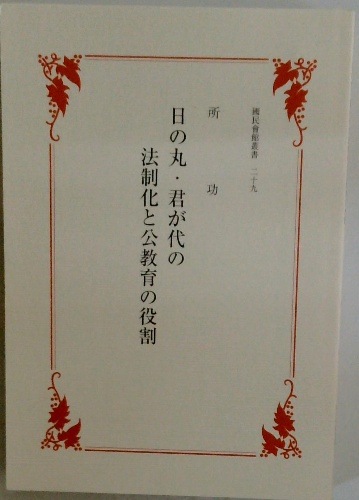 國民會館叢書 二十九
所 功
日の丸・君が代の
法制化と公教育の役割